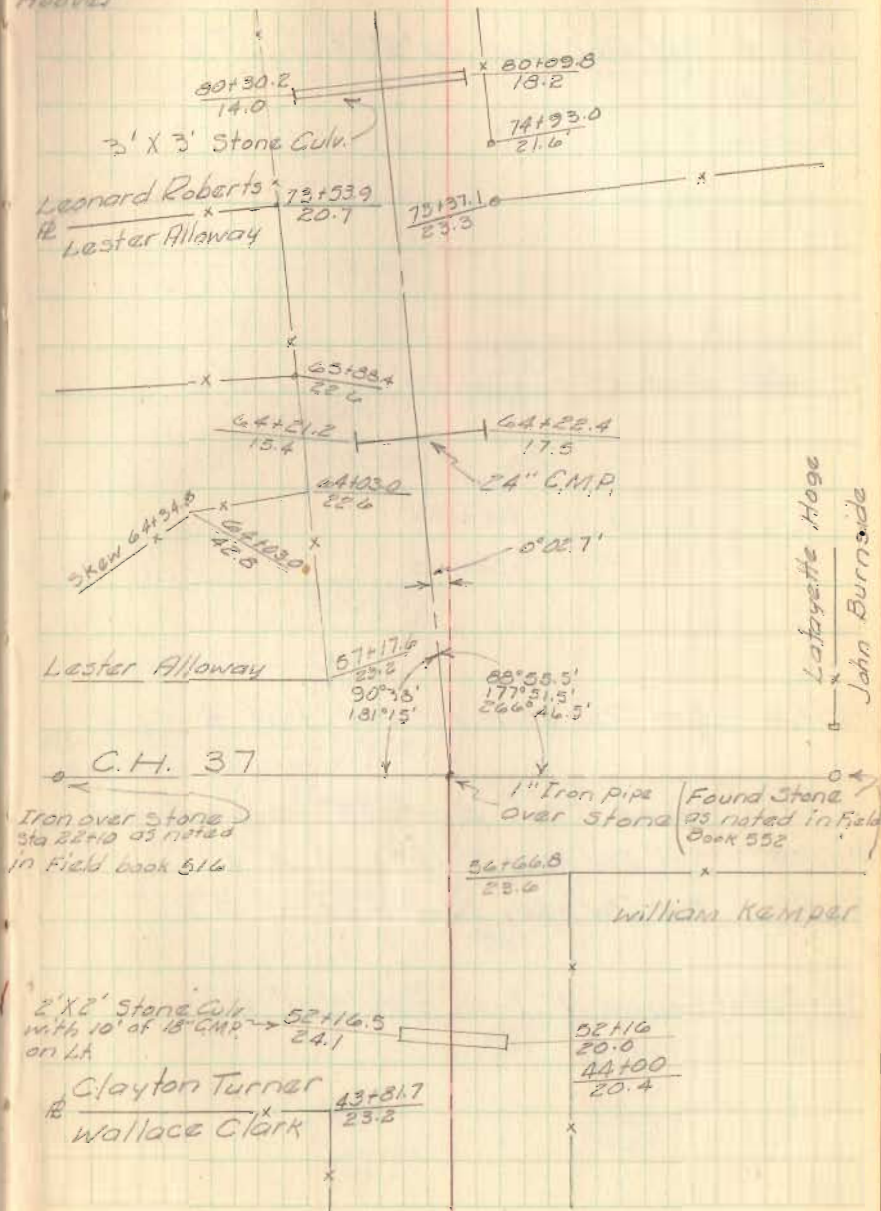 80+30.2
14.0
80+09.8
18.2
3' X 3' Stone Culv.
74+93.0
21.6'
Leonard Roberts
73+53.9
20.7
75+37.1
23.3
Lester Alloway
65+88.4
22.6
64+21.2
15.4
64+22.4
17.5
24" C.M.P.
64+03.0
22.6
Skew 64+34.8
64+03.0
42.8
0°02.7'
Lafayette Hoge
John Burnside
Lester Alloway
57+17.6
23.2
90°38'
181°15'
88°55.5'
177°51.5'
266°46.5'
C.H. 37
Iron over Stone
Sta 22+10 as noted
in Field book 516
1" Iron pipe
over stone
Found Stone
as noted in Field
Book 552
56+66.8
23.6
William Kemper
2'X2' Stone Culv
with 10' of 18" C.M.P.
on Lt.
52+16.5
24.1
52+16
20.0
44+00
20.4
Clayton Turner
43+81.7
23.2
Wallace Clark